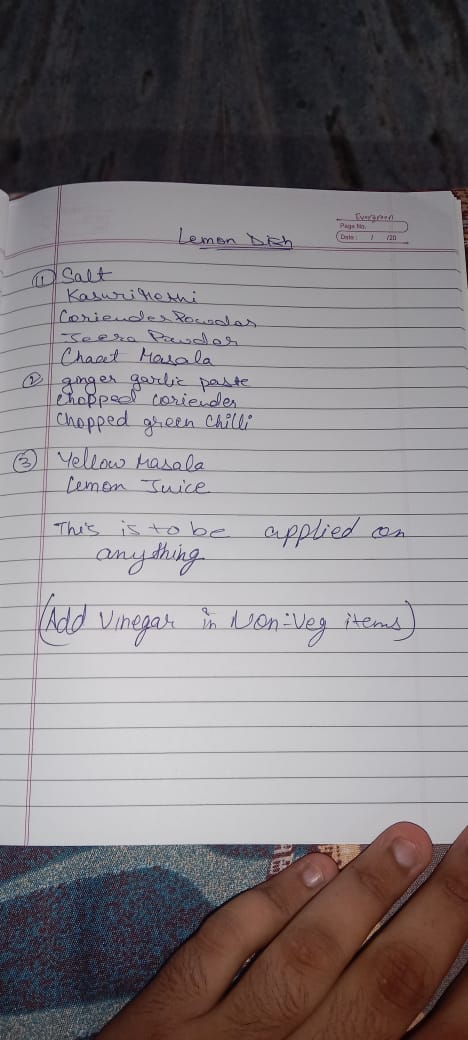 Evergreen
Page No.
Date: / /20
Lemon Dish
① Salt
Kasuri Methi
Coriender Powdar
Jeera Powdar
Chaat Masala
② ginger garlic paste
chopped coriender
Chopped green Chilli
③ Yellow Masala
Lemon Juice
This is to be applied on
anything
(Add Vinegar in Non-Veg items)